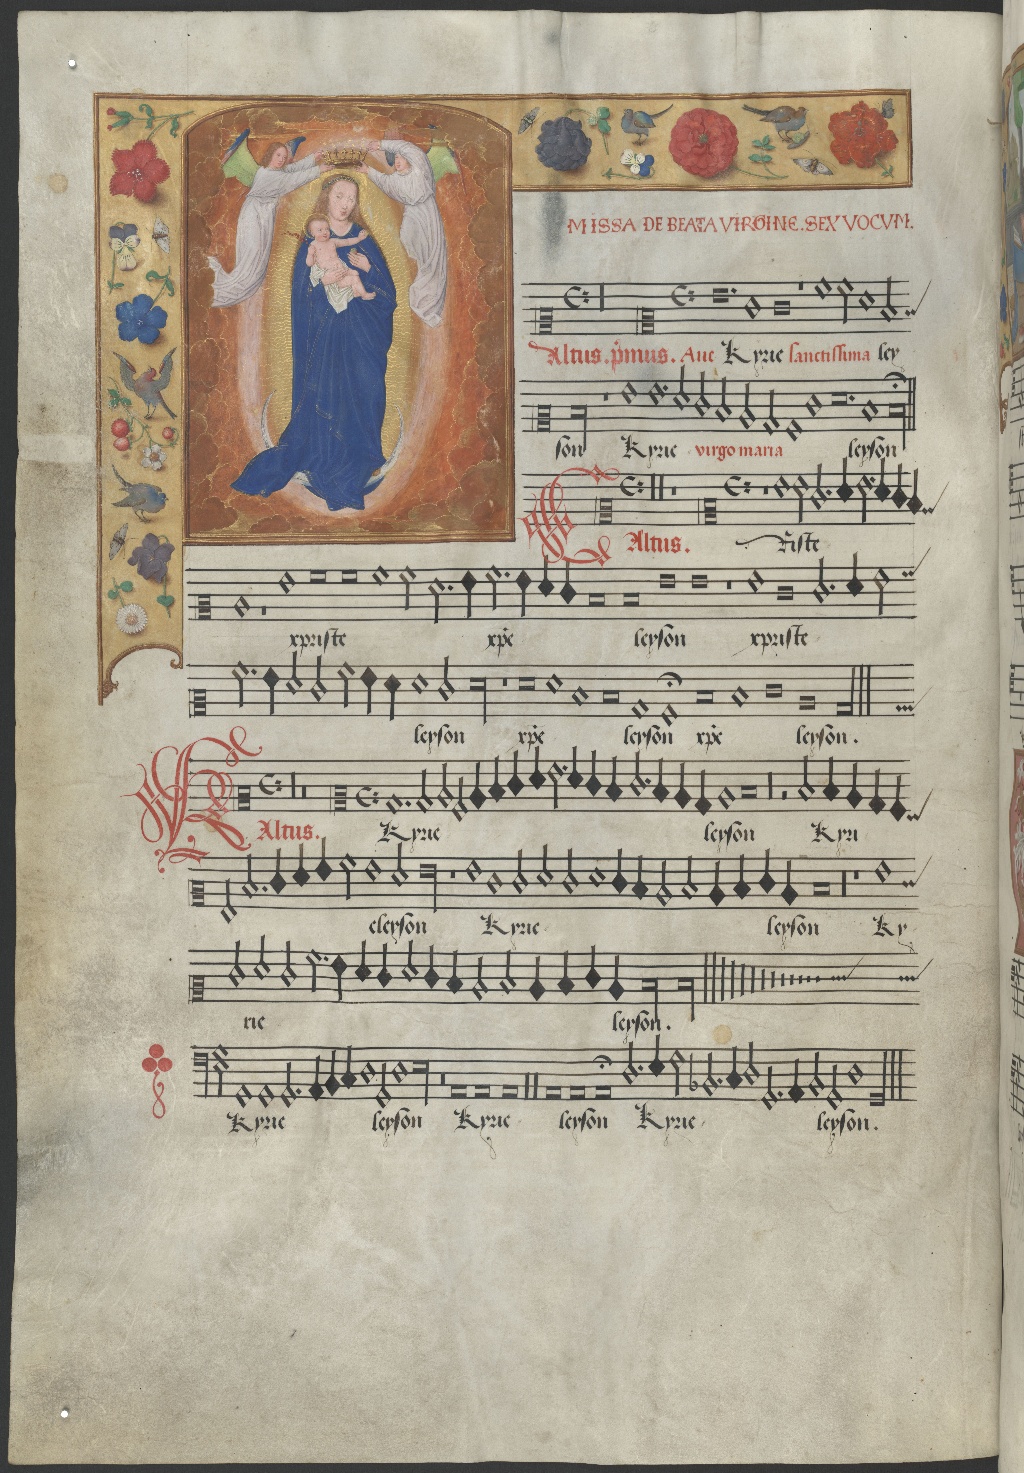 MISSA DE BEATA VIRGINE. SEX VOCVM.
Altus. p̃mus. Aue Kyrie sanctissima ley
son Kyrie virgo maria leyson
Altus. riste
xpriste xp̃e leyson xpriste
leyson xp̃e leyson xp̃e leyson.
Altus. Kyrie leyson Kyri
eleyson Kyrie leyson Ky
rie leyson.
Kyrie leyson Kyrie leyson Kyrie leyson.